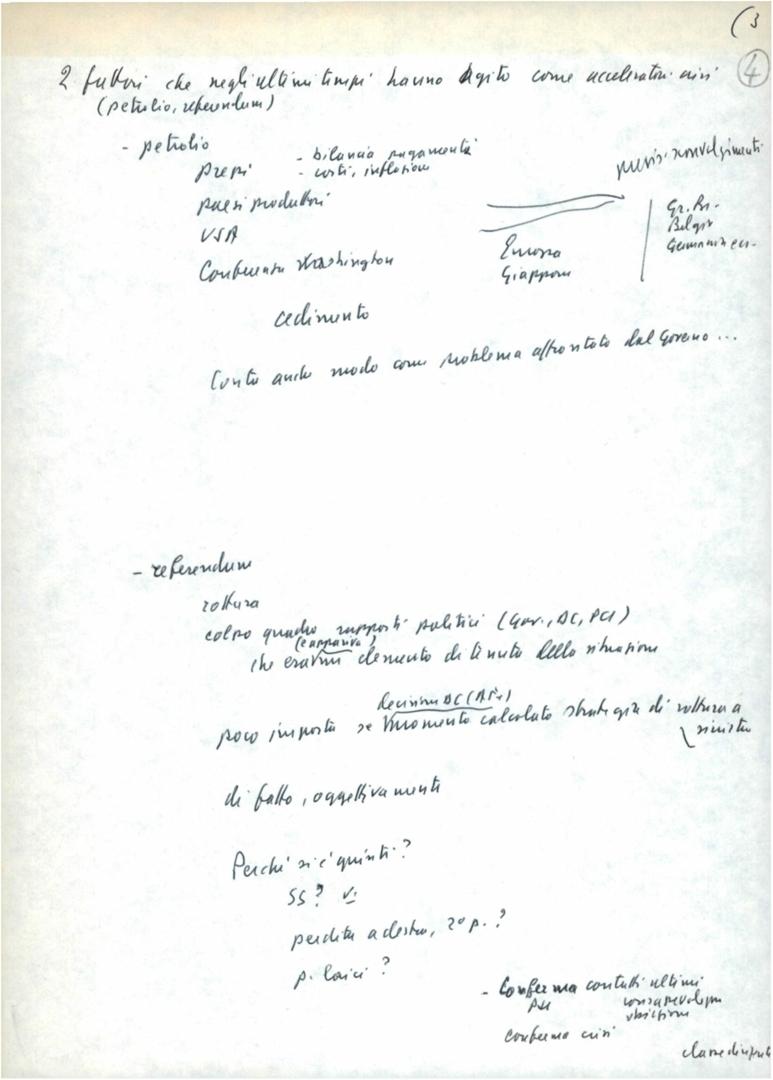 (3
4
2 fattori che negli ultimi tempi hanno agito come acceleratori crisi
(petrolio, referendum)
- petrolio
prezzi - bilancia pagamenti
- costi, inflazione
paesi produttori
USA
Conferenza Washington
Europa
Giappone
Gr. Br.
Belgio
Germania ecc.
cedimento
Conta anche modo come problema affrontato dal Governo ...
- referendum
rottura
colpo quadro rapporti politici (Gov., DC, PCI)
(e appariva)
che erano elemento di tenuta della situazione
decisione DC
poco importa se momento calcolato strategia di rottura a
sinistra
di fatto, oggettivamente
Perché si è giunti?
SS? Sì
perdita a destra, 20 p.?
p. laici?
- Conferma contatti ultimi
PSI consapevolezza
conferma crisi
classe dirigente